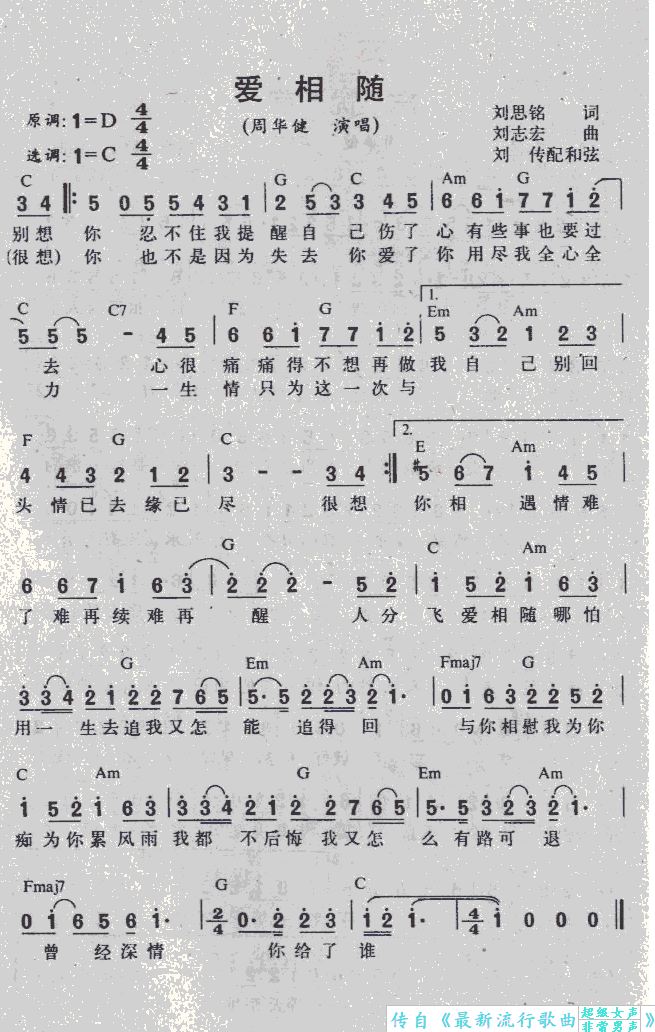 爱相随
原调:1=D 4/4
(周华健 演唱)
选调:1=C 4/4
刘思铭 词
刘志宏 曲
刘 传配和弦
C G C Am G
3 4 ‖: 5 0 5 5 4 3 1 | 2 5 3 3 4 5 | 6 6 i 7 7 i 2
别想 你 忍不住我提 醒自 己伤了 心有些事也要过
(很想) 你 也不是因为 失去 你爱了 你用尽我全心全
C C7 F G 1. Em Am
5 5 5 - 4 5 | 6 6 i 7 7 i 2 | 5 3 2 1 2 3
去 心很 痛痛得不想再做 我自 己别回
力 一生 情只为这一次与
F G C 2. E Am
4 4 3 2 1 2 | 3 - - 3 4 :‖ #5 6 7 i 4 5
头情已去缘已 尽 很想 你相 遇情难
G C Am
6 6 7 i 6 3 | 2 2 2 - 5 2 | i 5 2 i 6 3
了难再续难再 醒 人分 飞爱相随哪怕
G Em Am Fmaj7 G
3 3 4 2 i 2 2 7 6 5 | 5· 5 2 2 3 2 i· | 0 i 6 3 2 2 5 2
用一 生去追我又怎 能 追得 回 与你相慰我为你
C Am G Em Am
i 5 2 i 6 3 | 3 3 4 2 i 2 2 7 6 5 | 5· 5 3 2 3 2 i·
痴为你累风雨 我都 不后悔我又怎 么有路可 退
Fmaj7 G C
0 i 6 5 6 i· | 2/4 0· 2 2 3 | i 2 i· | 4/4 i 0 0 0 ‖
曾 经深情 你给了 谁
传自《最新流行歌曲 超级女声 非常男声》